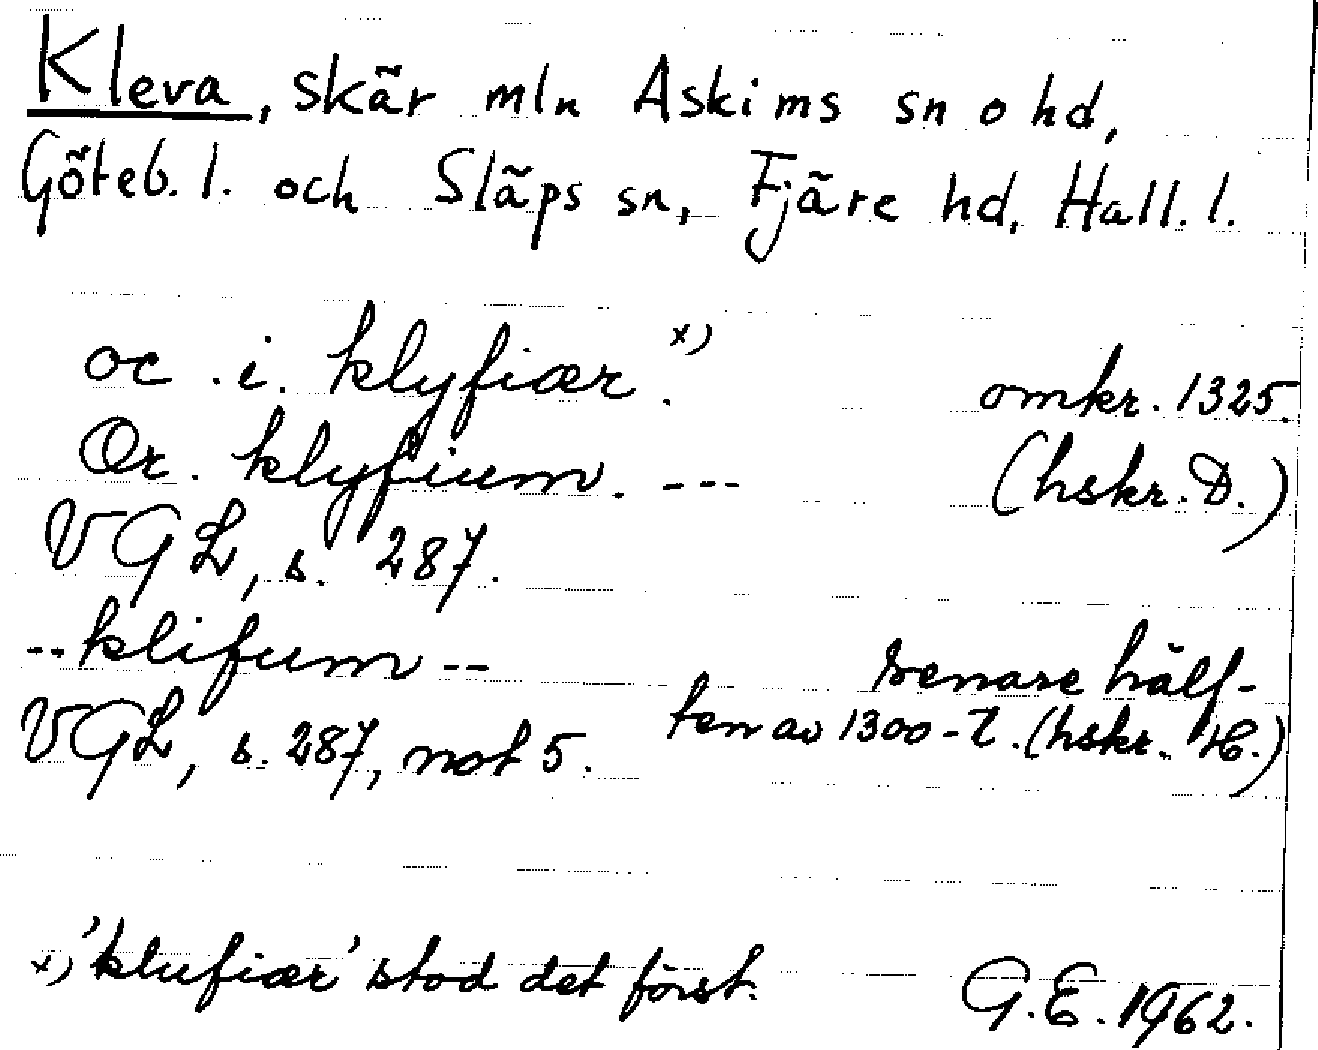 Kleva, skär mln Askims sn o hd,
Göteb. l. och Släps sn, Fjäre hd, Hall. l.
oc . i. klyfiær. x) omkr. 1325.
Or. klyfium. --- (hskr. D.)
VGL, s. 287.
-- klifum -- senare hälf-
VGL, s. 287, not 5. ten av 1300-t. (hskr. H.)
x) 'klufiær' stod det först. G.E. 1962.